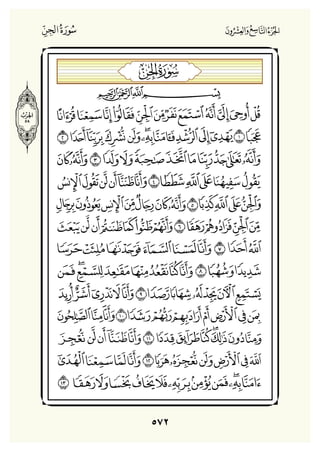 الجُزْءُ التَّاسِعُ وَالعِشْرُونَ
سُورَةُ الجِنّ
سُورَةُ الجِنِّ
بِسْمِ ٱللَّهِ ٱلرَّحْمَٰنِ ٱلرَّحِيمِ
قُلْ أُوحِىَ إِلَىَّ أَنَّهُ ٱسْتَمَعَ نَفَرٌ مِّنَ ٱلْجِنِّ فَقَالُوٓا۟ إِنَّا سَمِعْنَا قُرْءَانًا
عَجَبًا ١ يَهْدِىٓ إِلَى ٱلرُّشْدِ فَـَٔامَنَّا بِهِۦ ۖ وَلَن نُّشْرِكَ بِرَبِّنَآ أَحَدًا ٢
وَأَنَّهُۥ تَعَٰلَىٰ جَدُّ رَبِّنَا مَا ٱتَّخَذَ صَٰحِبَةً وَلَا وَلَدًا ٣ وَأَنَّهُۥ كَانَ
يَقُولُ سَفِيهُنَا عَلَى ٱللَّهِ شَطَطًا ٤ وَأَنَّا ظَنَنَّآ أَن لَّن تَقُولَ ٱلْإِنسُ
وَٱلْجِنُّ عَلَى ٱللَّهِ كَذِبًا ٥ وَأَنَّهُۥ كَانَ رِجَالٌ مِّنَ ٱلْإِنسِ يَعُوذُونَ بِرِجَالٍ
مِّنَ ٱلْجِنِّ فَزَادُوهُمْ رَهَقًا ٦ وَأَنَّهُمْ ظَنُّوا۟ كَمَا ظَنَنتُمْ أَن لَّن يَبْعَثَ
ٱللَّهُ أَحَدًا ٧ وَأَنَّا لَمَسْنَا ٱلسَّمَآءَ فَوَجَدْنَٰهَا مُلِئَتْ حَرَسًا
شَدِيدًا وَشُهُبًا ٨ وَأَنَّا كُنَّا نَقْعُدُ مِنْهَا مَقَٰعِدَ لِلسَّمْعِ ۖ فَمَن
يَسْتَمِعِ ٱلْـَٔانَ يَجِدْ لَهُۥ شِهَابًا رَّصَدًا ٩ وَأَنَّا لَا نَدْرِىٓ أَشَرٌّ أُرِيدَ
بِمَن فِى ٱلْأَرْضِ أَمْ أَرَادَ بِهِمْ رَبُّهُمْ رَشَدًا ١٠ وَأَنَّا مِنَّا ٱلصَّٰلِحُونَ
وَمِنَّا دُونَ ذَٰلِكَ ۖ كُنَّا طَرَآئِقَ قِدَدًا ١١ وَأَنَّا ظَنَنَّآ أَن لَّن نُّعْجِزَ
ٱللَّهَ فِى ٱلْأَرْضِ وَلَن نُّعْجِزَهُۥ هَرَبًا ١٢ وَأَنَّا لَمَّا سَمِعْنَا ٱلْهُدَىٰٓ
ءَامَنَّا بِهِۦ ۖ فَمَن يُؤْمِنۢ بِرَبِّهِۦ فَلَا يَخَافُ بَخْسًا وَلَا رَهَقًا ١٣
٥٧٢